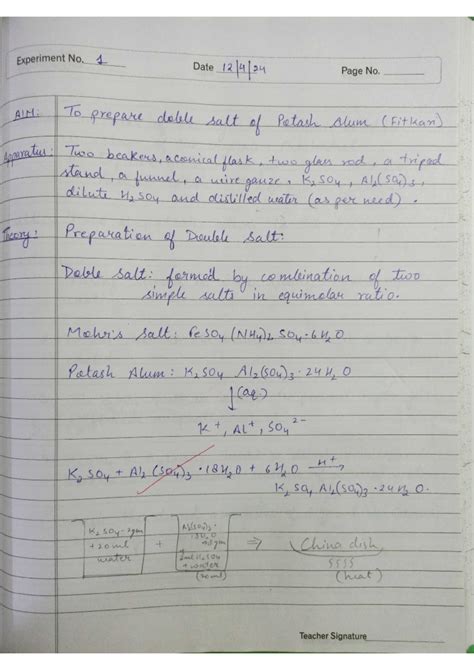 Experiment No. 1
Date 12/9/24
Page No.
AIM: To prepare doble salt of Potash Alum (Fitkari)
Apparatus: Two beakers, a conical flask, two glass rod, a tripod
stand, a funnel, a wire gauze, K2SO4, Al2(SO4)3,
dilute H2SO4 and distilled water (as per need).
Theory: Preparation of Double Salt:
Doble Salt: formed by combination of two
simple salts in equimolar ratio.
Mohr's Salt: FeSO4 (NH4)2 SO4·6H2O
Potash Alum: K2SO4 Al2(SO4)3·24H2O
↓(aq.)
K+, Al+, SO4 2-
K2SO4 + Al2(SO4)3·18H2O + 6H2O H+→
K2SO4 Al2(SO4)3·24H2O.
K2SO4
+20ml
water
+
Al2(SO4)3·
18H2O
2ml H2SO4
+water
⇒
China dish
(heat)
Teacher Signature